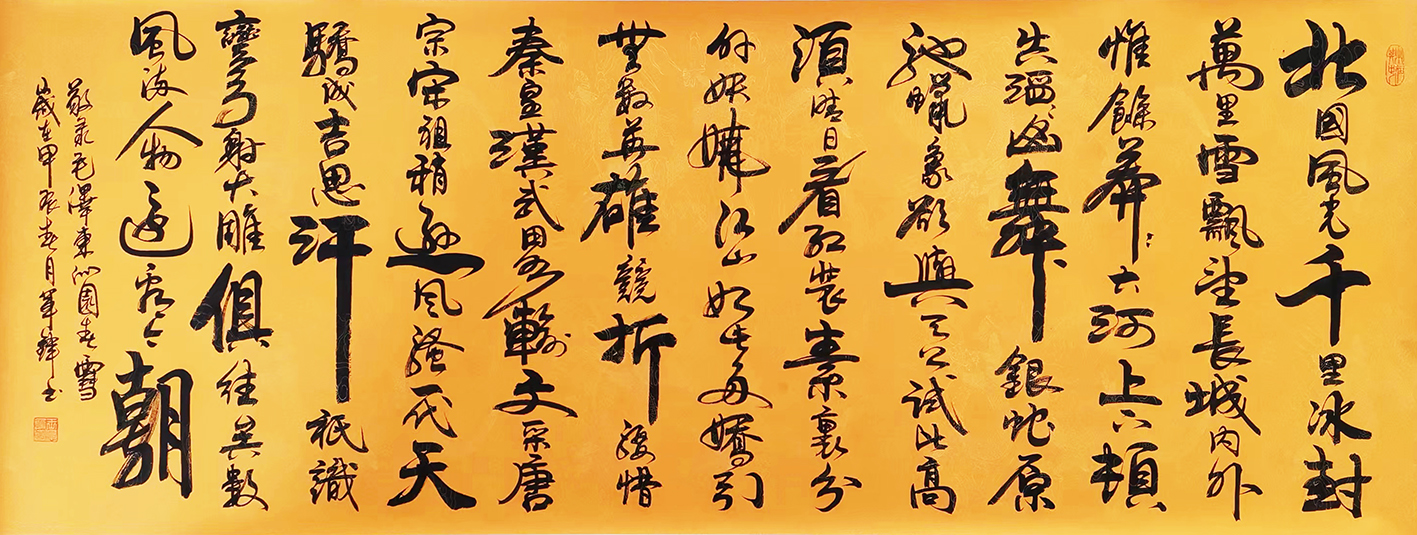 北國風光千里冰封
萬里雪飄望長城內外
惟餘莽々大河上下頓
失滔々山舞銀蛇原
馳蠟象欲與天公試比高
須晴日看紅裝素裹分
外妖嬈江山如此多嬌引
無數英雄競折腰惜
秦皇漢武略輸文采唐
宗宋祖稍遜风騷一代天
驕成吉思汗祇識
彎弓射大雕俱往矣數
風流人物還看今朝
敬录毛澤東沁園春雪
歲在甲辰春月軍鋒书